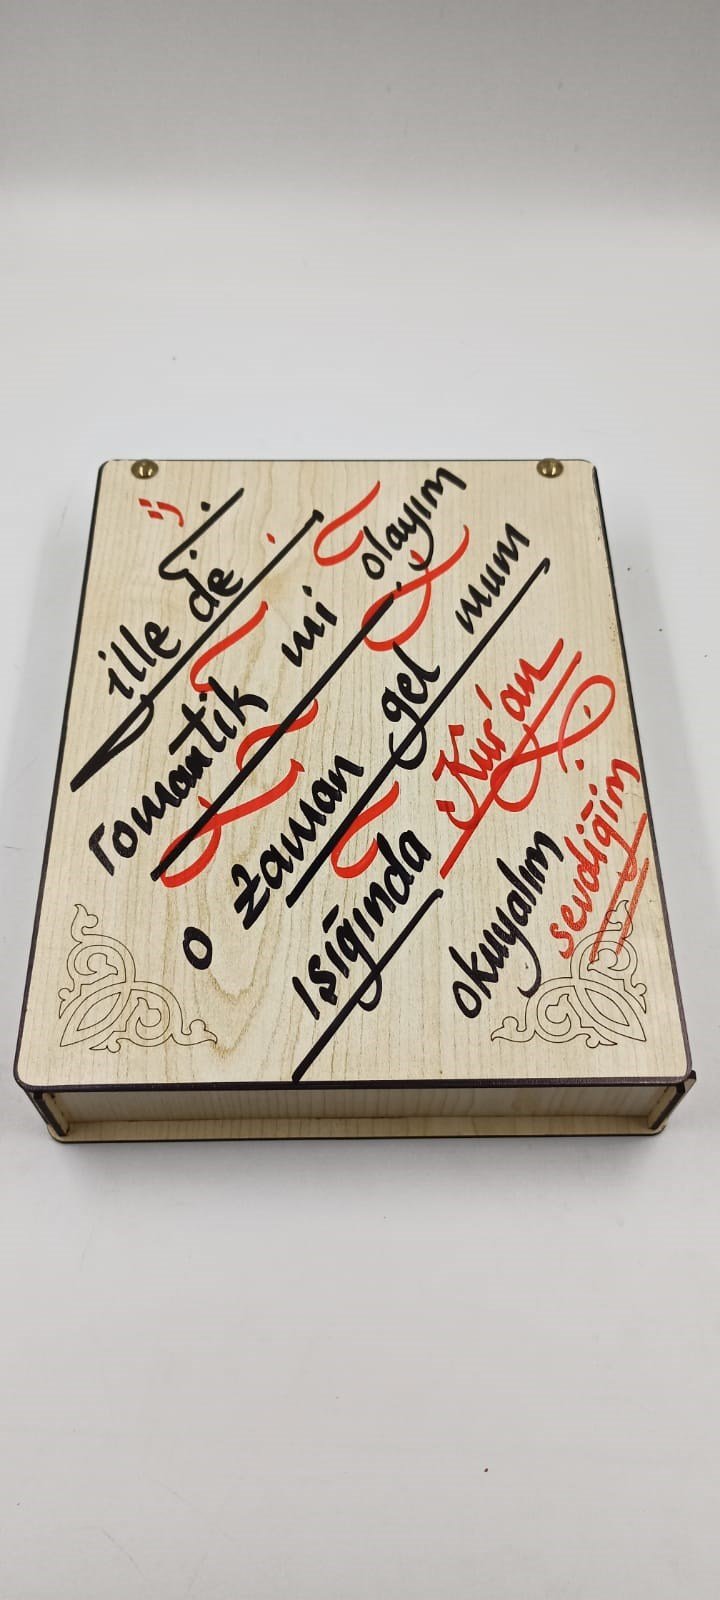 ille de
romantik mi olayım
o zaman gel mum
ışığında Kur'an
okuyalım sevdiğim